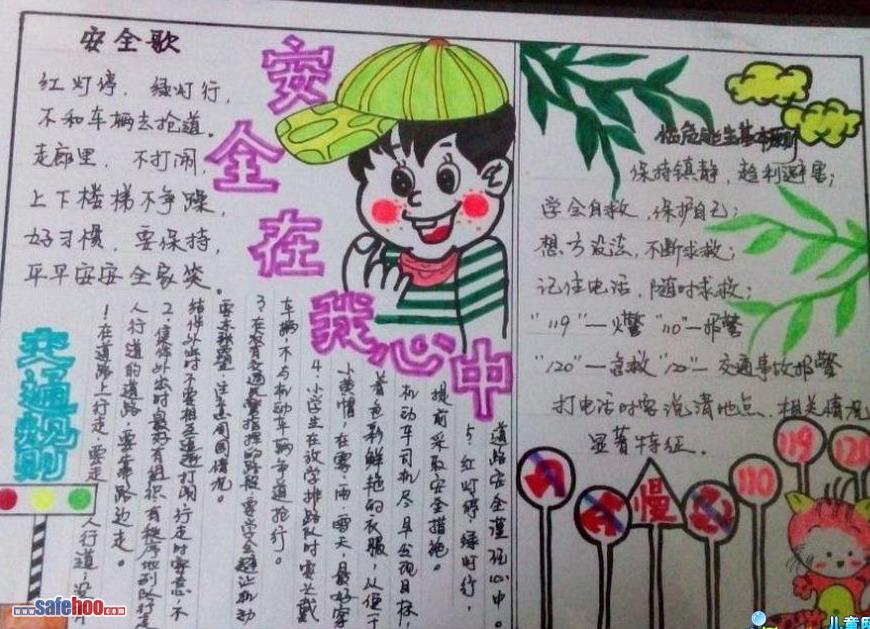 安全歌
红灯停，绿灯行，
不和车辆去抢道。
走廊里，不打闹，
上下楼梯不争躁，
好习惯，要保持，
平平安安全家笑。
安全在我心中
交通规则
1在道路上行走，要走人行道，没有
人行道的道路，要靠路边走。
2、集体外出时，最好有组织、有秩序地列队行走
结伴外出时不要相互追逐打闹行走时要意，不
要东张西望，注意周围情况。
3、在没有交通民警指挥的路段，要学会避让机动
车辆，不与机动车辆争道抢行。
4、小学生在放学排路队时要头戴
小黄帽，在雾、雨、雪天，最好穿
着色彩鲜艳的衣服，以便于
机动车司机尽早发现目标，
提前采取安全措施。
5、红灯停，绿灯行，
道路安全谨记心中。
保持镇静，趋利避害；
学会自救，保护自己；
想方设法，不断求救；
记住电话，随时求救；
"119"—火警 "110"—报警
"120"—急救 "120"— 交通事故报警
打电话时要说清地点、相关情况
显著特征。
慢
110
119
120
www.safehoo.com
儿童网